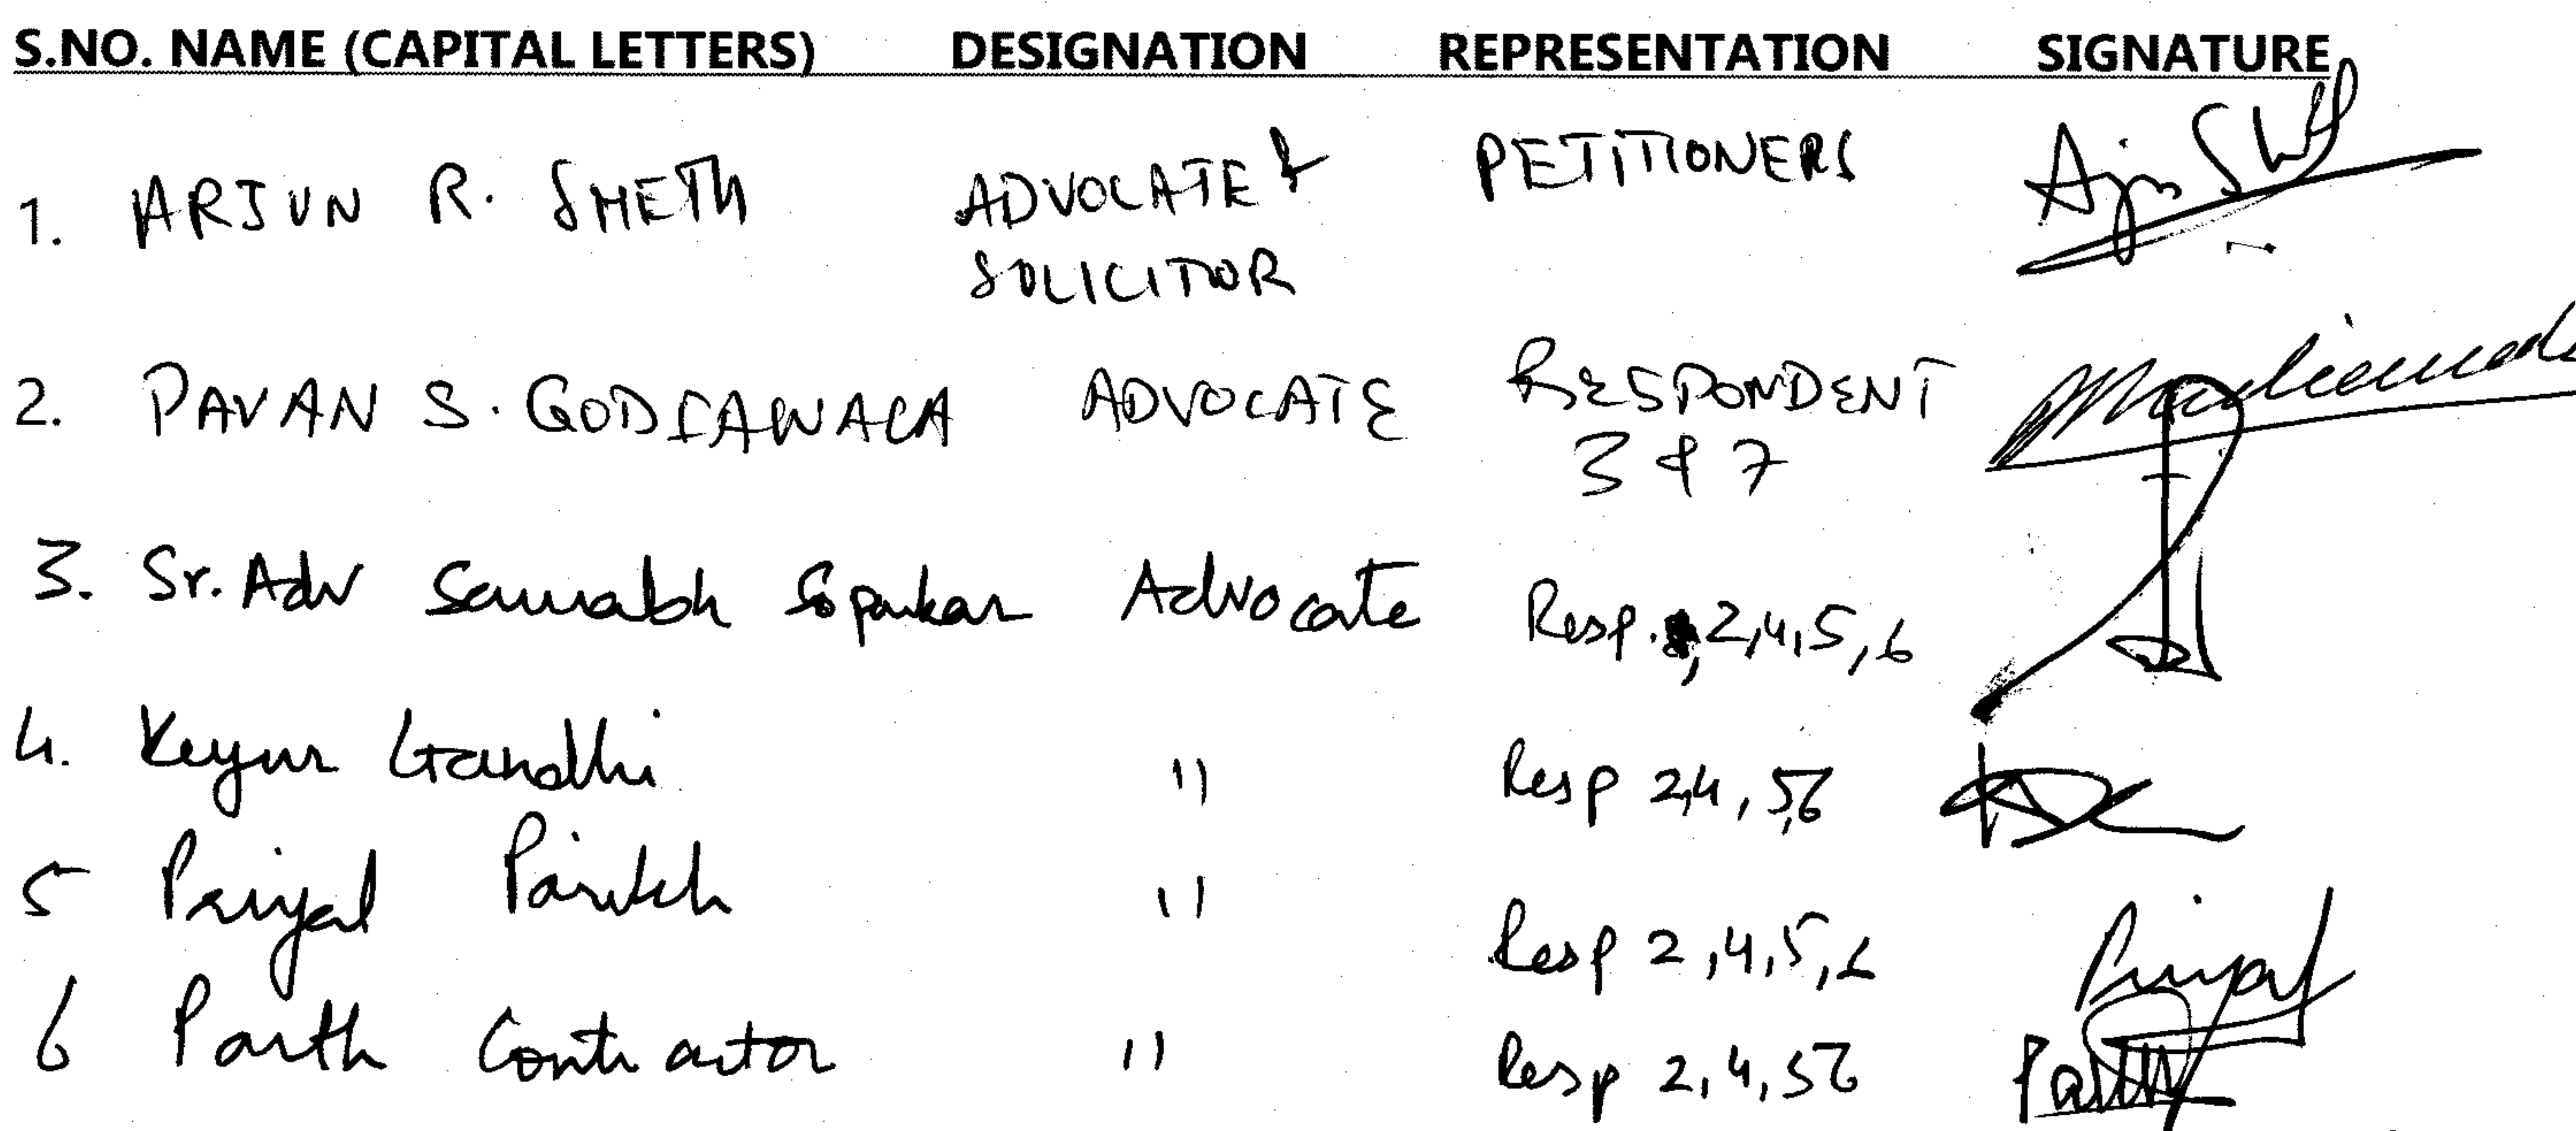 S.NO. NAME (CAPITAL LETTERS) DESIGNATION REPRESENTATION SIGNATURE
1. ARJUN R. SHETH ADVOCATE & PETITIONERS
SOLICITOR
2. PAVAN S. GODIAWALA ADVOCATE RESPONDENT
3 & 7
3. Sr. Adv Saurabh Soparkar Advocate Resp. 2,4,5,6
4. Keyur Gandhi " Resp 2,4,5,6
5 Priyal Parikh " Resp 2,4,5,6 Priyal
6 Parth Contractor " Resp 2,4,56 Parth